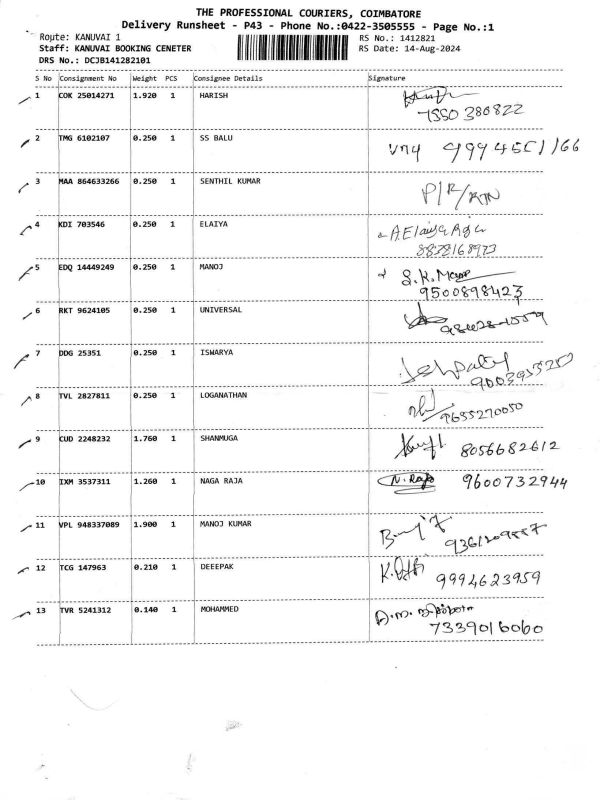 THE PROFESSIONAL COURIERS, COIMBATORE
Delivery Runsheet - P43 - Phone No.:0422-3505555 - Page No.:1
Route: KANUVAI 1 RS No.: 1412821
Staff: KANUVAI BOOKING CENETER RS Date: 14-Aug-2024
DRS No.: DCJB141282101
S No Consignment No Weight PCS Consignee Details Signature
1 COK 25014271 1.920 1 HARISH
7550 380822
2 TMG 6102107 0.250 1 SS BALU
3 MAA 864633266 0.250 1 SENTHIL KUMAR
4 KDI 703546 0.250 1 ELAIYA
8838168973
5 EDQ 14449249 0.250 1 MANOJ
9500898423
6 RKT 9624105 0.250 1 UNIVERSAL
7 DDG 25351 0.250 1 ISWARYA
8 TVL 2827811 0.250 1 LOGANATHAN
9655270050
9 CUD 2248232 1.760 1 SHANMUGA 8056682612
10 IXM 3537311 1.260 1 NAGA RAJA N. Raja 9600732944
11 VPL 948337089 1.900 1 MANOJ KUMAR
12 TCG 147963 0.210 1 DEEEPAK
9994623959
13 TVR 5241312 0.140 1 MOHAMMED
7339016060